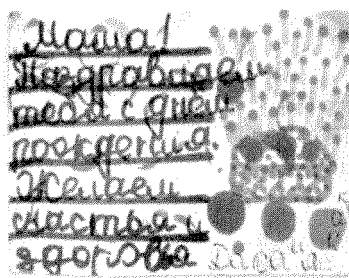 Маша!
Поздравляем
тебя с днём
рождения.
Желаем
счастья и
здоровья